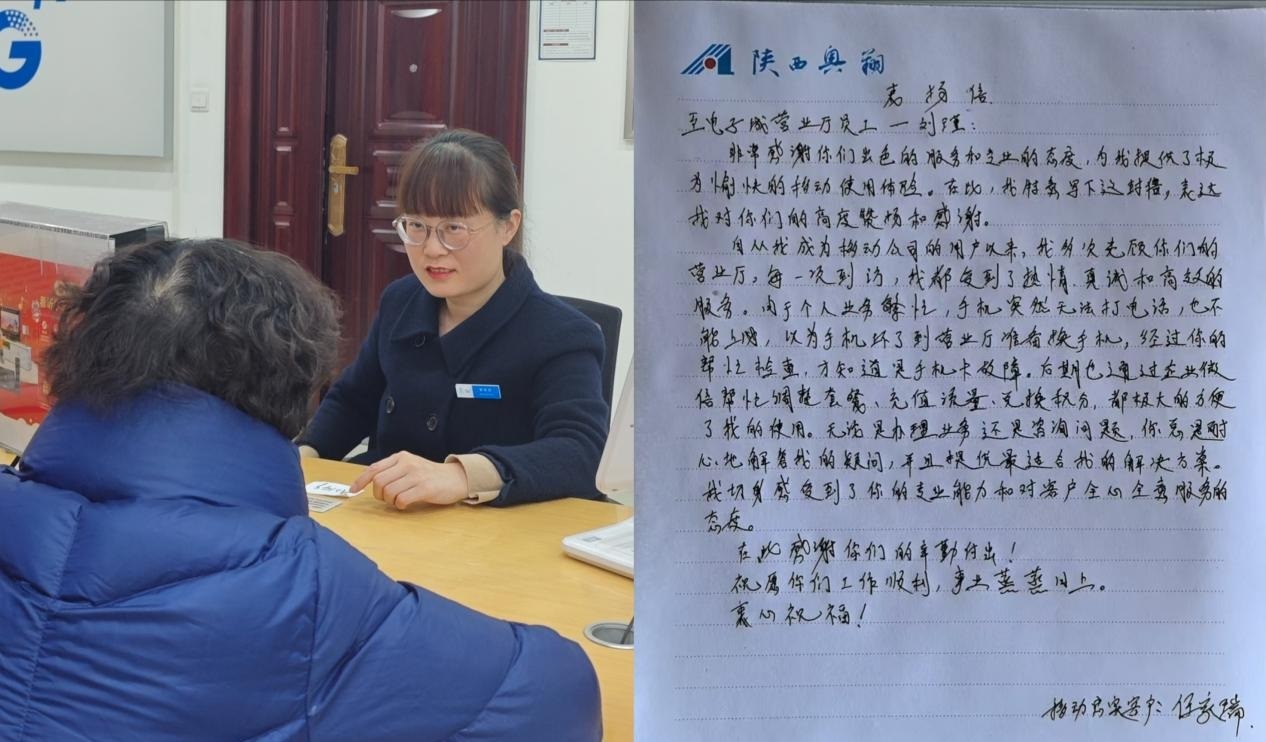 G
陕西奥翔
表扬信
至电子城营业厅员工一刘瑾:
非常感谢你们出色的服务和专业的态度,为我提供了极
为愉快的移动使用体验。在此,我特意写下这封信,表达
我对你们的高度赞扬和感谢。
自从我成为移动公司的用户以来,我多次光顾你们的
营业厅,每一次到访,我都受到了热情、真诚和高效的
服务。由于个人业务繁忙,手机突然无法打电话,也不
能上网,以为手机坏了到营业厅准备换手机,经过你的
帮忙检查,才知道是手机卡故障。后期也通过企业微
信帮忙调整套餐、充值流量、兑换积分,都极大的方便
了我的使用。无论是办理业务还是咨询问题,你总是耐
心地解答我的疑问,并且提供最适合我的解决方案。
我切身感受到了你的专业能力和对客户全心全意服务的
态度。
在此感谢你们的辛勤付出!
祝愿你们工作顺利,事业蒸蒸日上。
衷心祝福!
移动忠实客户:任